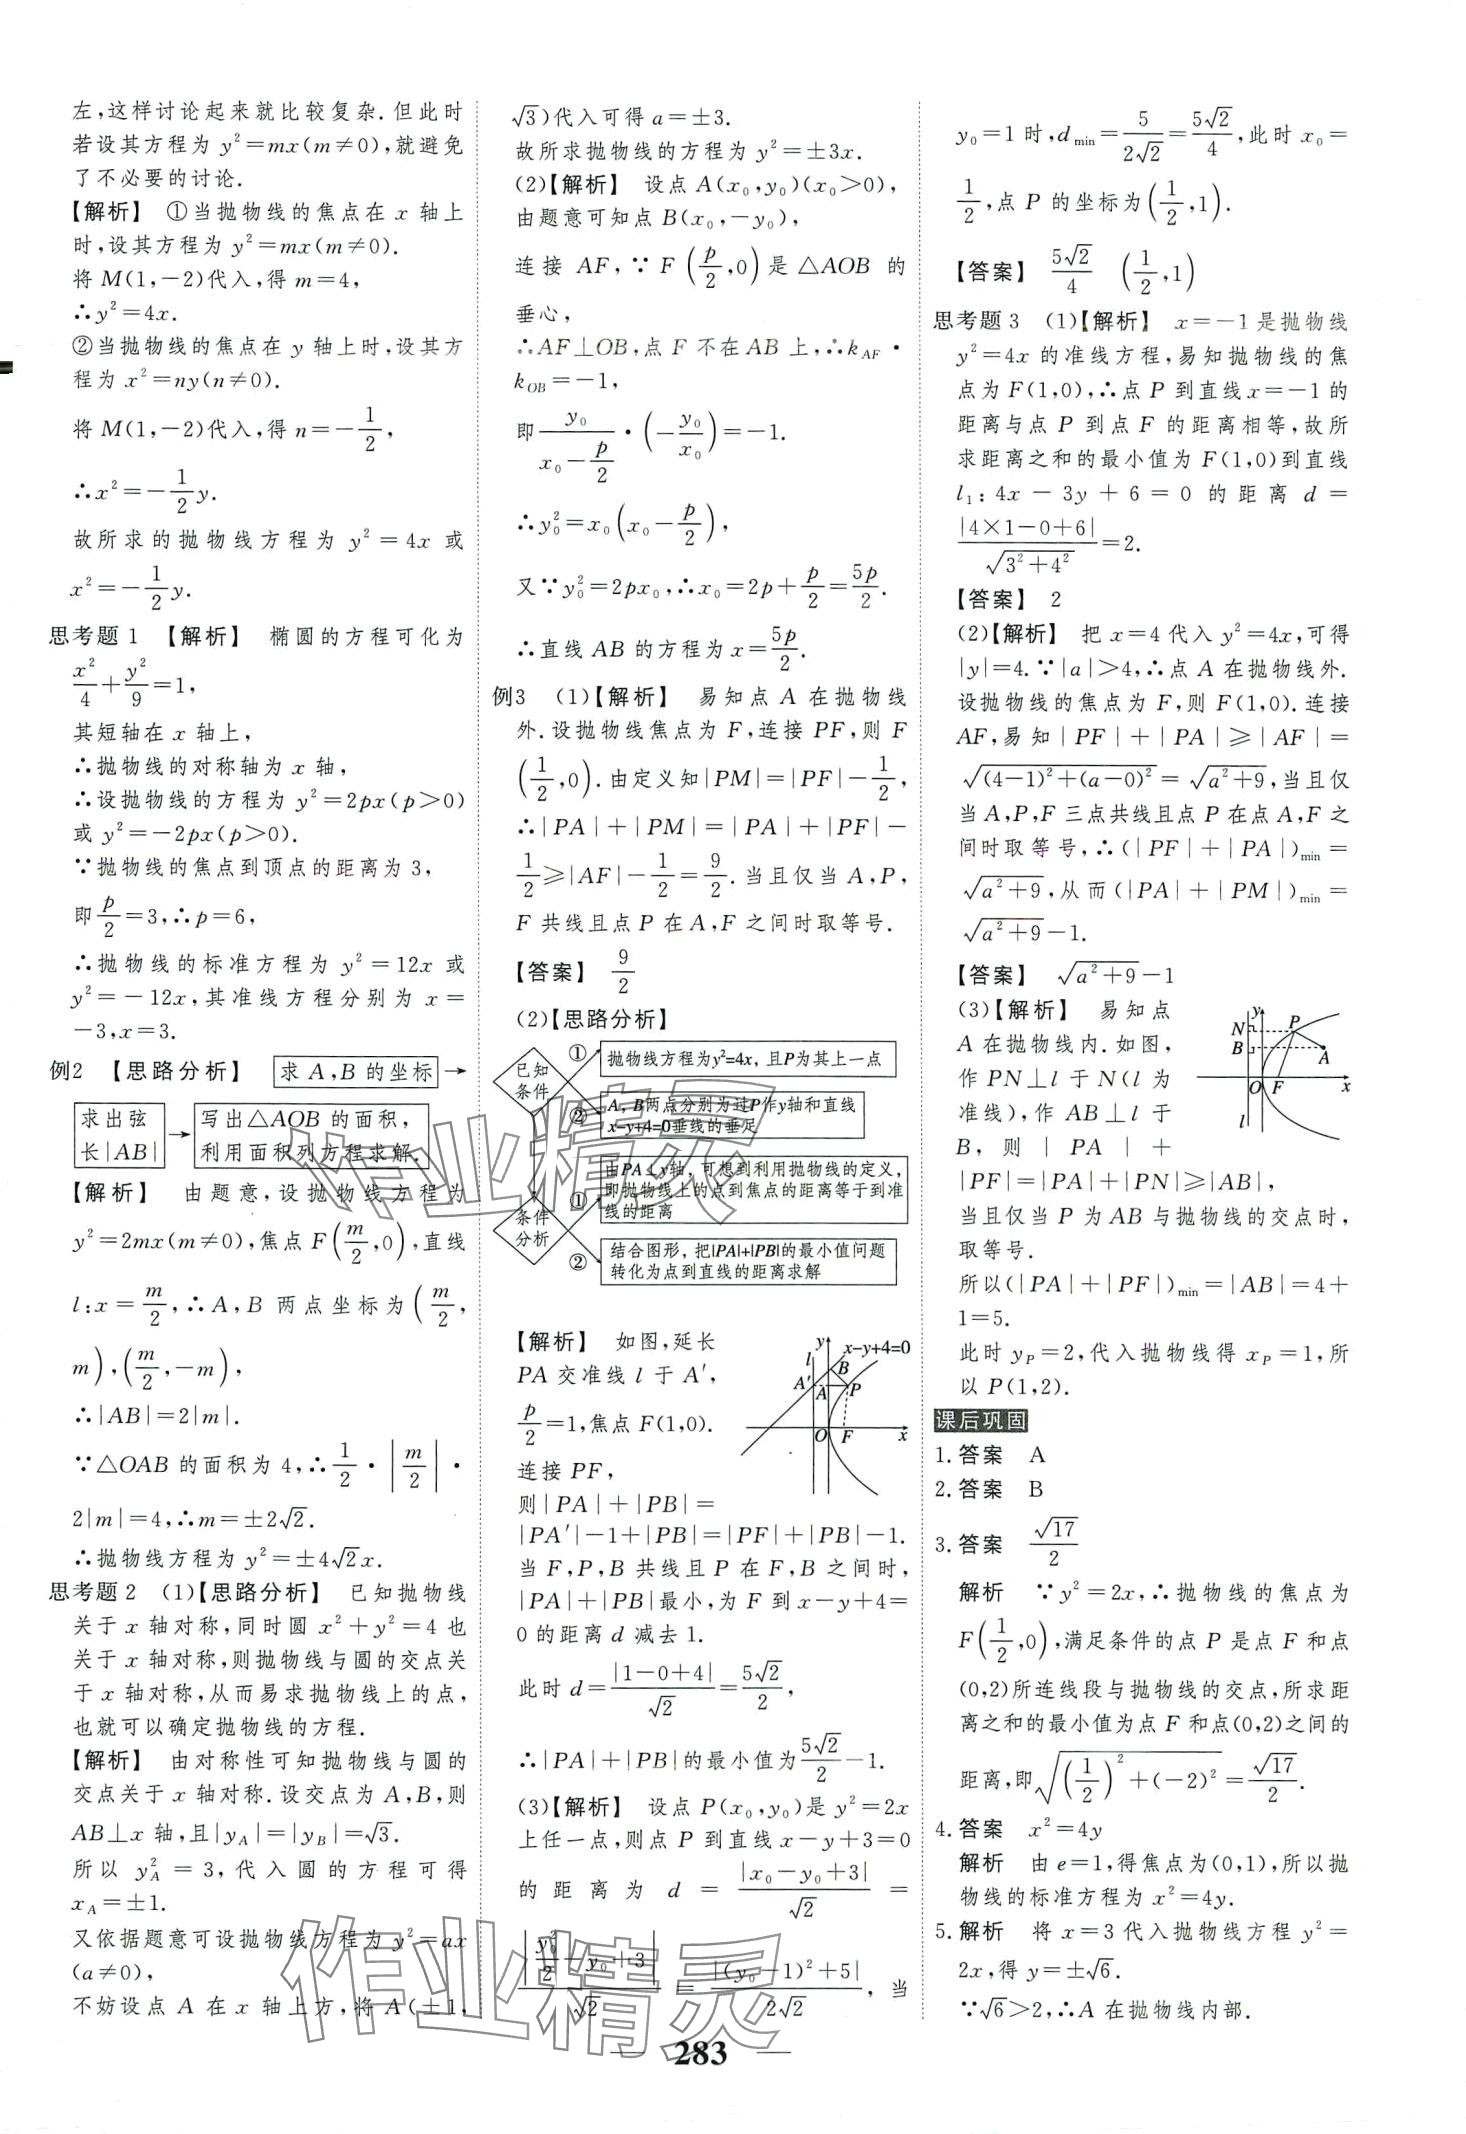 左,这样讨论起来就比较复杂.但此时
若设其方程为 y²=mx(m≠0),就避免
了不必要的讨论.
【解析】 ①当抛物线的焦点在 x 轴上
时,设其方程为 y²=mx(m≠0).
将 M(1,-2)代入,得 m=4,
∴y²=4x.
②当抛物线的焦点在 y 轴上时,设其方
程为 x²=ny(n≠0).
将 M(1,-2)代入,得 n=-1/2,
∴x²=-1/2y.
故所求的抛物线方程为 y²=4x 或
x²=-1/2y.
思考题 1 【解析】 椭圆的方程可化为
x²/4+y²/9=1,
其短轴在 x 轴上,
∴抛物线的对称轴为 x 轴,
∴设抛物线的方程为 y²=2px(p>0)
或 y²=-2px(p>0).
∵抛物线的焦点到顶点的距离为 3,
即p/2=3,∴p=6,
∴抛物线的标准方程为 y²=12x 或
y²=-12x,其准线方程分别为 x=
-3,x=3.
例2 【思路分析】 求 A,B 的坐标 →
求出弦长|AB| → 写出△AOB 的面积,利用面积列方程求解.
【解析】 由题意,设抛物线方程为
y²=2mx(m≠0),焦点 F(m/2,0),直线
l:x=m/2,∴A,B 两点坐标为(m/2,
m),(m/2,-m),
∴|AB|=2|m|.
∵△OAB 的面积为 4,∴1/2·|m/2|·
2|m|=4,∴m=±2√2.
∴抛物线方程为 y²=±4√2x.
思考题 2 (1)【思路分析】 已知抛物线
关于 x 轴对称,同时圆 x²+y²=4 也
关于 x 轴对称,则抛物线与圆的交点关
于 x 轴对称,从而易求抛物线上的点,
也就可以确定抛物线的方程.
【解析】 由对称性可知抛物线与圆的
交点关于 x 轴对称.设交点为 A,B,则
AB⊥x 轴,且|y_A|=|y_B|=√3.
所以 y_A²=3,代入圆的方程可得
x_A=±1.
又依据题意可设抛物线方程为 y²=ax
(a≠0),
不妨设点 A 在 x 轴上方,将 A(±1,
√3)代入可得 a=±3.
故所求抛物线的方程为 y²=±3x.
(2)【解析】 设点 A(x₀,y₀)(x₀>0),
由题意可知点 B(x₀,-y₀),
连接 AF,∵F(p/2,0)是△AOB 的
垂心,
∴AF⊥OB,点 F 不在 AB 上,∴k_AF·
k_OB=-1,
即y₀/(x₀-p/2)·(-y₀/x₀)=-1.
∴y₀²=x₀(x₀-p/2),
又∵y₀²=2px₀,∴x₀=2p+p/2=5p/2.
∴直线 AB 的方程为 x=5p/2.
例3 (1)【解析】 易知点 A 在抛物线
外.设抛物线焦点为 F,连接 PF,则 F
(1/2,0).由定义知|PM|=|PF|-1/2,
∴|PA|+|PM|=|PA|+|PF|-
1/2≥|AF|-1/2=9/2.当且仅当 A,P,
F 共线且点 P 在 A,F 之间时取等号.
【答案】 9/2
(2)【思路分析】
已知条件
① 抛物线方程为y²=4x,且P为其上一点
② A,B两点分别为过P作y轴和直线
x-y+4=0垂线的垂足
条件分析
① 由PA⊥y轴,可想到利用抛物线的定义,
即抛物线上的点到焦点的距离等于到准
线的距离
② 结合图形,把|PA|+|PB|的最小值问题
转化为点到直线的距离求解
【解析】 如图,延长
PA 交准线 l 于 A′,
p/2=1,焦点 F(1,0).
连接 PF,
则|PA|+|PB|=
y l B x-y+4=0 A′ A P O F x
|PA′|-1+|PB|=|PF|+|PB|-1.
当 F,P,B 共线且 P 在 F,B 之间时,
|PA|+|PB|最小,为 F 到 x-y+4=
0 的距离 d 减去 1.
此时 d=|1-0+4|/√2=5√2/2,
∴|PA|+|PB|的最小值为5√2/2-1.
(3)【解析】 设点 P(x₀,y₀)是 y²=2x
上任一点,则点 P 到直线 x-y+3=0
的距离为 d=|x₀-y₀+3|/√2=
|y₀²/2-y₀+3|/√2=|(y₀-1)²+5|/2√2,当
y₀=1 时,d_min=5/2√2=5√2/4,此时 x₀=
1/2,点 P 的坐标为(1/2,1).
【答案】 5√2/4 (1/2,1)
思考题 3 (1)【解析】 x=-1 是抛物线
y²=4x 的准线方程,易知抛物线的焦
点为 F(1,0),∴点 P 到直线 x=-1 的
距离与点 P 到点 F 的距离相等,故所
求距离之和的最小值为 F(1,0)到直线
l₁:4x-3y+6=0 的距离 d=
|4×1-0+6|/√(3²+4²)=2.
【答案】 2
(2)【解析】 把 x=4 代入 y²=4x,可得
|y|=4.∵|a|>4,∴点 A 在抛物线外.
设抛物线的焦点为 F,则 F(1,0).连接
AF,易知|PF|+|PA|≥|AF|=
√((4-1)²+(a-0)²)=√(a²+9),当且仅
当 A,P,F 三点共线且点 P 在点 A,F 之
间时取等号,∴(|PF|+|PA|)_min=
√(a²+9),从而(|PA|+|PM|)_min=
√(a²+9)-1.
【答案】 √(a²+9)-1
(3)【解析】 易知点
A 在抛物线内.如图,
作 PN⊥l 于 N(l 为
准线),作 AB⊥l 于
B,则|PA|+
y N P B A O F x l
|PF|=|PA|+|PN|≥|AB|,
当且仅当 P 为 AB 与抛物线的交点时,
取等号.
所以(|PA|+|PF|)_min=|AB|=4+
1=5.
此时 y_P=2,代入抛物线得 x_P=1,所
以 P(1,2).
课后巩固
1.答案 A
2.答案 B
3.答案 √17/2
解析 ∵y²=2x,∴抛物线的焦点为
F(1/2,0),满足条件的点 P 是点 F 和点
(0,2)所连线段与抛物线的交点,所求距
离之和的最小值为点 F 和点(0,2)之间的
距离,即√((1/2)²+(-2)²)=√17/2.
4.答案 x²=4y
解析 由 e=1,得焦点为(0,1),所以抛
物线的标准方程为 x²=4y.
5.解析 将 x=3 代入抛物线方程 y²=
2x,得 y=±√6.
∵√6>2,∴A 在抛物线内部.
283
作业精灵
作业精灵